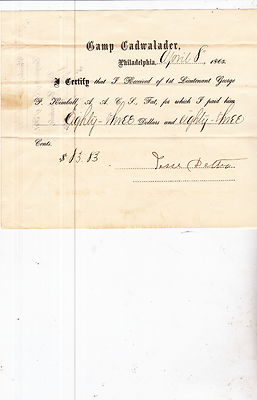 Camp Cadwalader,
Philadelphia, April 8, 186
I Certify that I Received of 1st Lieutenant George
P. Kimball, A. A. C. S., Fat, for which I paid him
Eighty-three Dollars and eighty-three
Cents.
$
Jesse